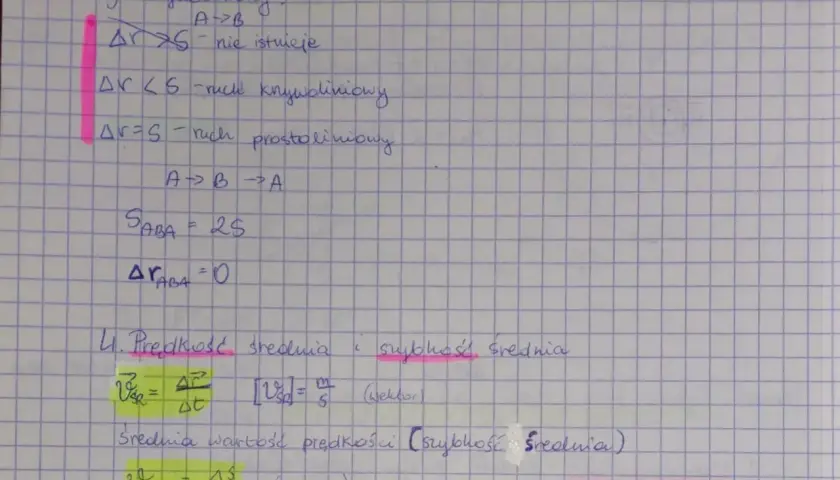 A→B
Δr > S - nie istnieje
Δr < S - ruch krzywoliniowy
Δr = S - ruch prostoliniowy
A → B → A
S_ABA = 2S
Δr_ABA = 0
4. Prędkość średnia i szybkość średnia
v⃗_śr = Δr⃗/Δt [v_śr] = m/s (wektor)
średnia wartość prędkości (szybkość średnia)